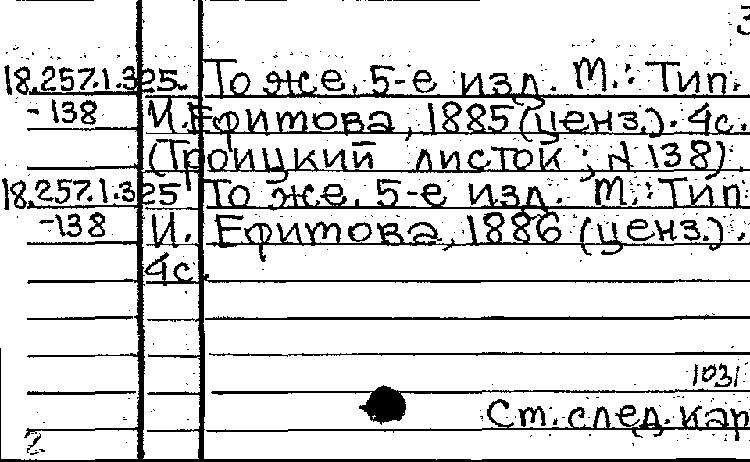 18.257.1.325. То же. 5-е изд. М.: Тип.
-138 И. Ефимова, 1885 (ценз.). 4с.
(Троицкий листок; № 138)
18.257.1.325 То же. 5-е изд. М.: Тип
-138 И. Ефимова, 1886 (ценз.).
4с.
1031
Ст. след. кар
2